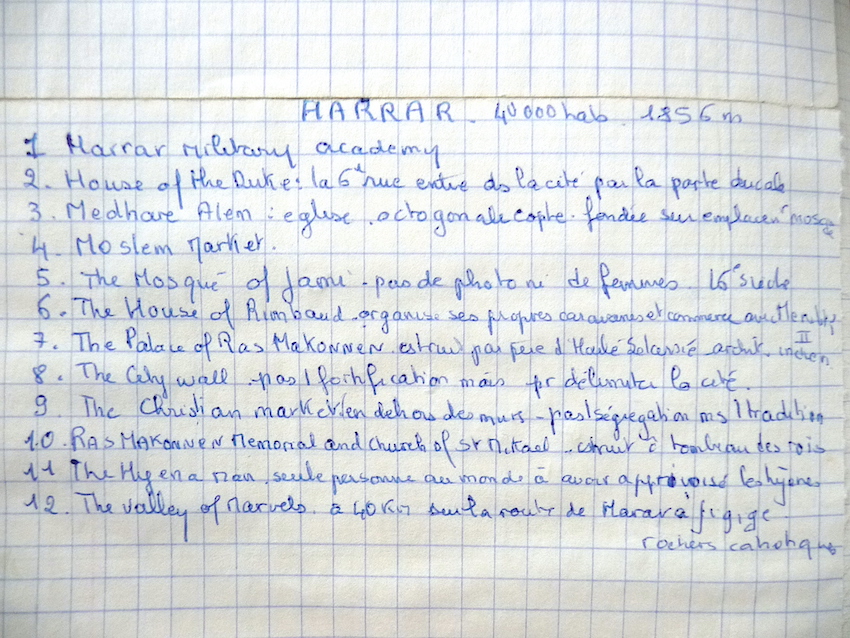 HARRAR. 40 000 hab. 1856 m
1 Harrar Military academy
2. House of the Duke: la 6e rue entre ds la cité par la porte ducale
3. Medhane Alem: eglise octogonale copte. fondée sur emplacent mosquée
4. Moslem Market.
5. The Mosqué of Jami - pas de photo ni de femmes. 16e siècle
6. The House of Rimbaud. organise ses propres caravanes et commerce avec Menelik II
7. The Palace of RAS MAKONNEN. père d'Hailé Selassié archit. indien
8. The City wall. pas 1 fortification mais pr délimiter la cité.
9. The Christian market en dehors des murs - pas 1 ségrégation ms 1 tradition
10. RAS MAKONNEN Memorial and church of St Mikael. tombeau des rois
11 The Hyena man. seule personne au monde à avoir apprivoisé les hyènes
12. The valley of Marvels. à 40 Km sur la route de Harar à Jigige
rochers